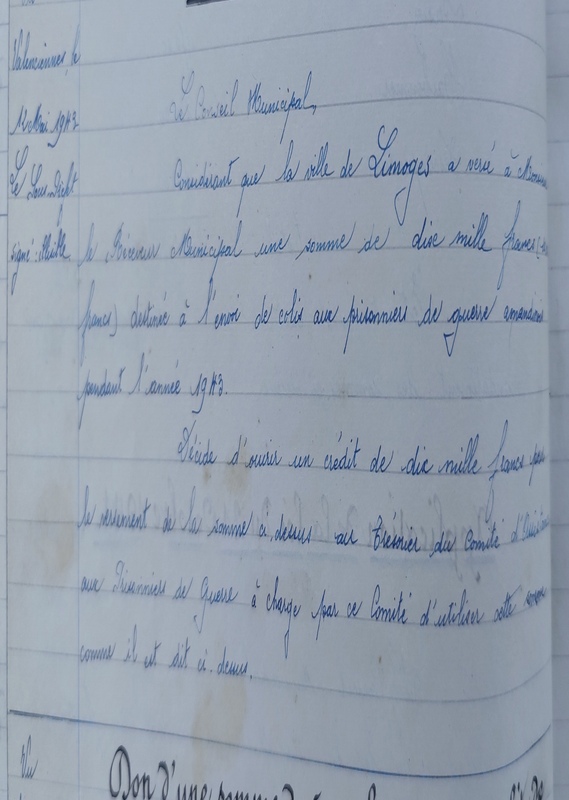 Valenciennes, le
12 Mai 1943
Le Sous-Préfet
signé:
Le Conseil Municipal,
Considérant que la ville de Limoges a versé à Monsieur
le Receveur Municipal une somme de dix mille francs
francs) destinée à l'envoi de colis aux prisonniers de guerre amandinois
pendant l'année 1943.
Décide d'ouvrir un crédit de dix mille francs pour
le versement de la somme ci-dessus au Trésorier du Comité d'Assistance
aux Prisonniers de Guerre à charge par ce Comité d'utiliser cette somme
comme il est dit ci-dessus.
Vu
Don d'une somme de